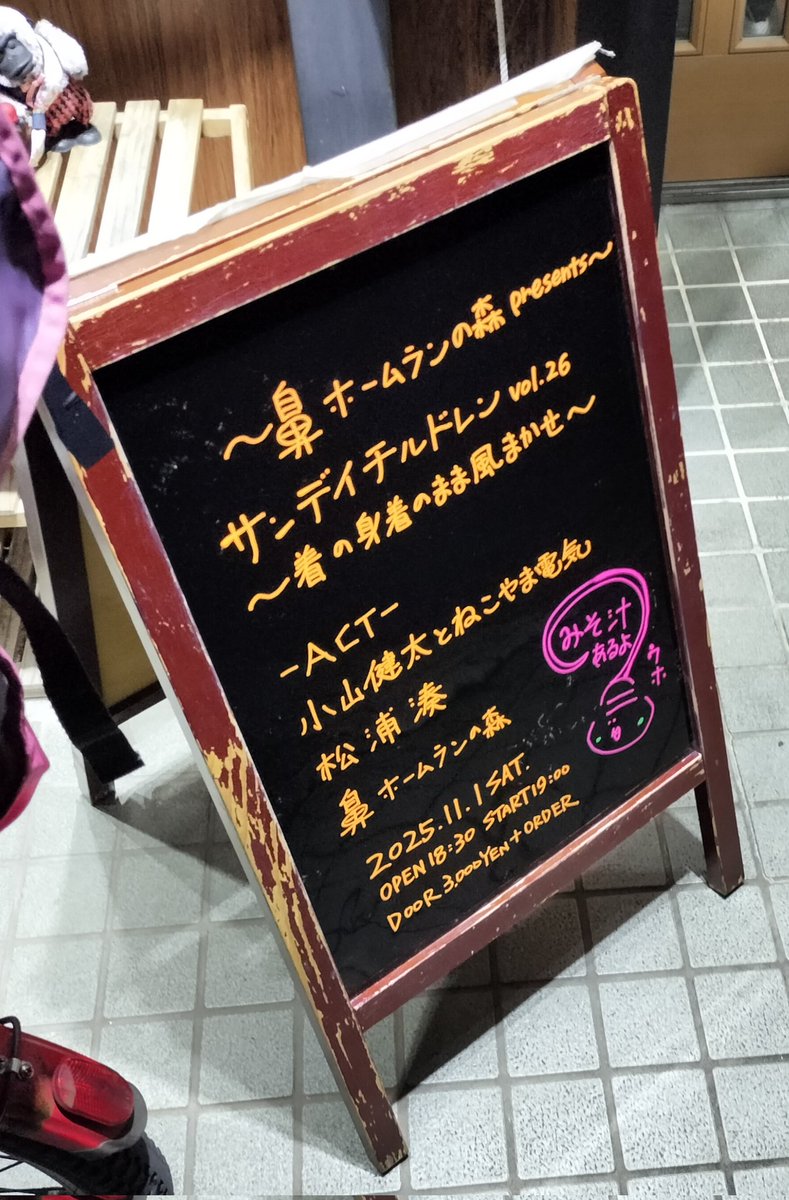 ～鼻 ホームランの森 presents～
サンデイチルドレン vol.26
～着の身着のまま風まかせ～
-ACT-
小山健太とねこやま電気
松浦湊
鼻 ホームランの森
2025.11.1 SAT.
OPEN 18:30 START 19:00
DOOR 3.000YEN + ORDER
みそ汁
あるよ
ウホ